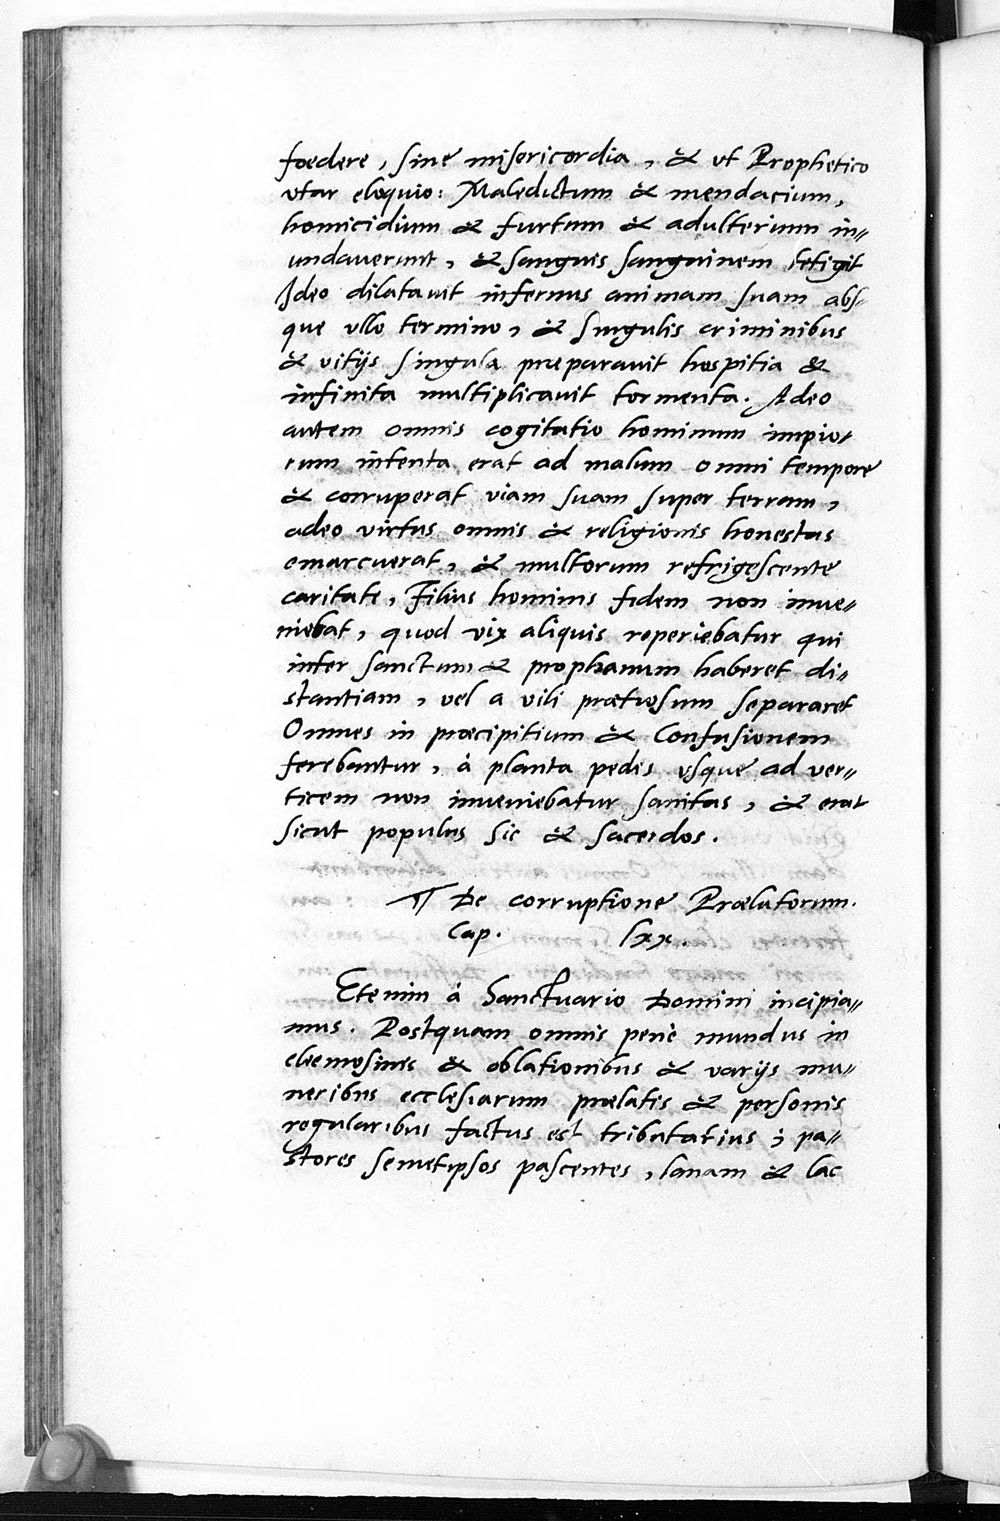 foedere, sine misericordia, & vt Prophetico
vtar eloquio: Maledictum & mendacium,
homicidium & furtum & adulterium in=
undauerunt, & sanguis sanguinem tetigit
Ideo dilatauit infernus animam suam abs=
que vllo termino, & singulis criminibus
& vitijs singula præparauit hospitia &
infinita multiplicauit tormenta. Adeo
autem omnis cogitatio hominum impio=
rum intenta erat ad malum omni tempore
& corruperat viam suam super terram,
adeo virtus omnis & religionis honestas
emarcuerat, & multorum refrigescente
caritate, Filius hominis fidem non inue=
niebat, quod vix aliquis reperiebatur qui
inter sanctum & prophanum haberet di=
stantiam, vel a vili prætiosum separaret
Omnes in præcipitium & Confusionem
ferebantur, à planta pedis vsque ad ver=
ticem non inueniebatur sanitas, & erat
sicut populus sic & sacerdos.
¶ De corruptione Prælatorum.
Cap. lxx.
Etenim à Sanctuario Domini incipia=
mus. Postquam omnis penè mundus in
elemosinis & oblationibus & varijs mu=
neribus ecclesiarum prælatis & personis
regularibus factus est tributarius; pa=
stores semetipsos pascentes, lanam & lac